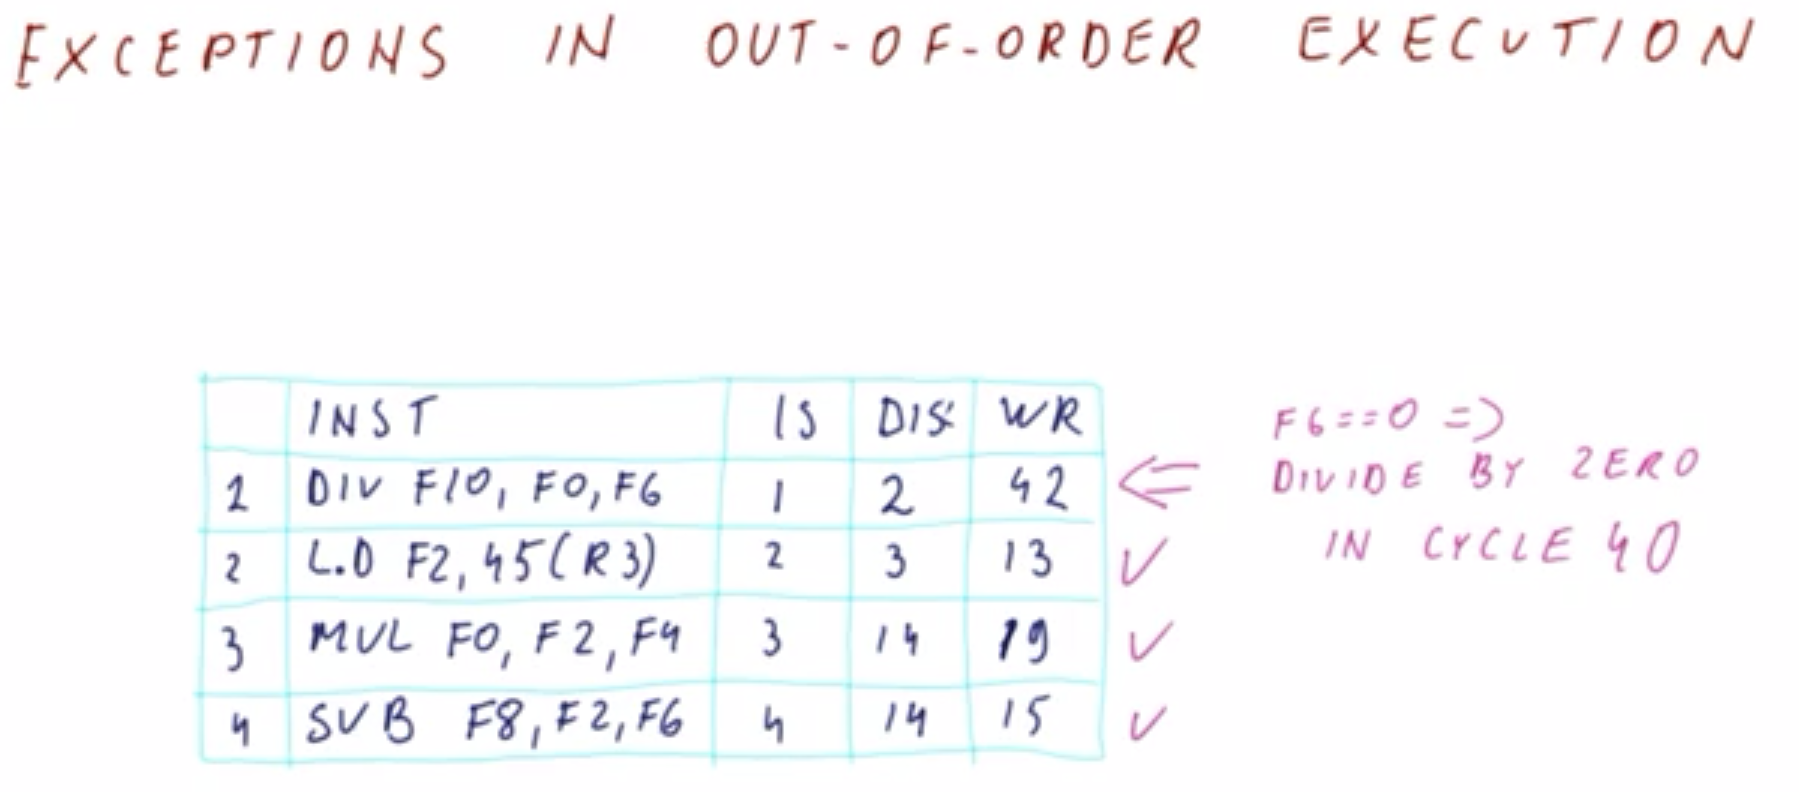 EXCEPTIONS IN OUT-OF-ORDER EXECUTION
INST IS DIS: WR
1 DIV F10, F0, F6 1 2 42
2 L.D F2, 45(R3) 2 3 13
3 MUL F0, F2, F4 3 14 19
4 SUB F8, F2, F6 4 14 15
F6==0 =>
DIVIDE BY ZERO
IN CYCLE 40